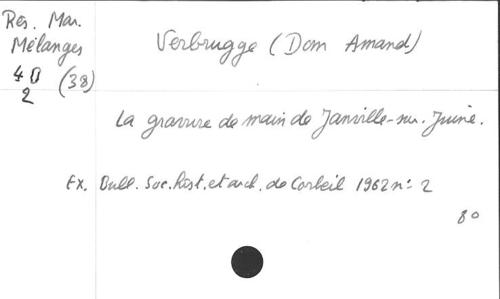 Res. Mar.
Mélanges
4 D (38)
2
Verbrugge (Dom Amand)
La gravure de main de Janville-sur-Juine.
Ex. Bull. Soc. hist. et arch. de Corbeil 1962 n: 2
8°